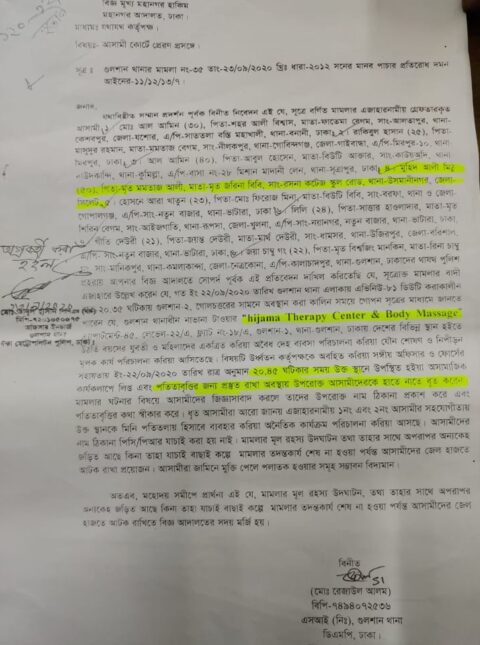 বিজ্ঞ মূখ্য মহানগর হাকিম
মহানগর আদালত, ঢাকা।
মাধ্যমঃ যথাযথ কর্তৃপক্ষ।
বিষয়ঃ- আসামী কোর্টে প্রেরণ প্রসঙ্গে।
সূত্র ঃ গুলশান থানার মামলা নং-৩৫ তাং-২৩/০৯/২০২০ খ্রিঃ ধারা-২০১২ সনের মানব পাচার প্রতিরোধ দমন
আইনের-১১/১২/১৩/৭।
জনাব,
যথাবিহীত সম্মান প্রদর্শন পূর্বক বিনীত নিবেদন এই যে, সূত্রে বর্ণিত মামলার এজাহারনামীয় গ্রেফতারকৃত
আসামী ১। মোঃ আল আমিন (৩০), পিতা-শহর আলী বিশ্বাস, মাতা-ফাতেমা বেগম, সাং-আলতাপুর, থানা-
কেশবপুর, জেলা-যশোর, এ/পি-সাততলা বস্তি মহাখালী, থানা-বনানী, ঢাকা, ২। রাকিবুল হাসান (২৫), পিতা-
মাসুদুর রহমান, মাতা-মমতাজ বেগম, সাং-নীলকপুর, থানা-গোবিন্দগঞ্জ, জেলা-গাইবান্ধা, এ/পি-মিরপুর-১০, থানা-
মিরপুর, ঢাকা, ৩। আল আমিন (৪০), পিতা-আবুল হোসেন, মাতা-বিউটি আক্তার, সাং-কাউয়াদি, থানা-
দাউদকান্দি, জেলা-কুমিল্লা, এ/পি-বাসা নং-২৮ মিশান মাদানী লেন, থানা-সূত্রাপুর, ঢাকা, ৪। মুহিদ আলী মিঠু
(৫০), পিতা-মৃত মমতাজ আলী, মাতা-মৃত জরিনা বিবি, সাং-রসনা কটেজ স্কুল রোড, থানা-উসমানীনগর, জেলা-
সিলেট, ৫। হোসনে আরা খাতুন (২৩), পিতা-মোঃ ফিরোজ মিনা, মাতা-বিউটি বিবি, সাং-বরফা, থানা ও জেলা-
গোপালগঞ্জ, এ/পি-সাং-নতুন বাজার, থানা-ভাটারা, ঢাকা, ৬। লিলি (২৪), পিতা-সাত্তার হাওলাদার, মাতা-মৃত
শিরিন বেগম, সাং-আইজগাতি, থানা-রূপসা, জেলা-খুলনা, এ/পি-সাং-নয়ানগর, নতুন বাজার, থানা-ভাটারা, ঢাকা,
নীতি দেউরী (২১), পিতা-জ্যান্ত দেউরী, মাতা-মার্থ দেউরী, সাং-বামসর, থানা-উজিরপুর, জেলা-বরিশাল,
এ/পি-সাং-নতুন বাজার, থানা-ভাটারা, ঢাকা, ৮। জয়া চাম্বু গং (২২), পিতা-মৃত বিশ্বজিৎ মানকিন, মাতা-রিনা চাম্বু
সাং মানিকপুর, থানা-কমলাকান্দা, জেলা-নেত্রকোনা, এ/পি-কালাচাদপুর, থানা-গুলশান, ঢাকাদের যথাযথ পুলিশ
প্রহরায় আপনার বিজ্ঞ আদালতে সোপর্দ পূর্বক এই প্রতিবেদন দাখিল করিতেছি যে, সূত্রোক্ত মামলার বাদী
এজাহারে উল্লেখ করেন যে, গত ইং ২২/০৯/২০২০ তারিখ গুলশান থানা এলাকায় এভিনিউ-৮১ ডিউটি করাকালীন
২০.৩৫ ঘটিকায় গুলশান-২, গোলচত্তরের সামনে অবস্থান করা কালিন সময়ে গোপন সূত্রের মাধ্যমে জানতে
পারেন যে, গুলশান থানাধীন নাভানা টাওয়ার "hijama Therapy Center & Body Massage"
এপার্টমেন্ট-৪৫, লেভেল-২২/এ, ফ্ল্যাট নং-১৮/এ, গুলশান-১, থানা-গুলশান, ঢাকায় দেশের বিভিন্ন স্থান হইতে
উঠতি বয়সের যুবতী ও মহিলাদের একত্রিত করিয়া অবৈধ দেহ ব্যবসা পরিচালনা করিয়া যৌন শোষণ ও নিপীড়ন
মূলক কার্য পরিচালনা করিয়া আসিতেছে। বিষয়টি উর্ধ্বতন কর্তৃপক্ষকে অবহিত করিয়া সঙ্গীয় অফিসার ও ফোর্সের
সহায়তায় ইং-২২/০৯/২০২০ তারিখ রাত্র অনুমান ২০.৪৫ ঘটিকার সময় উক্ত স্থানে উপস্থিত হইয়া অসামাজিক
কার্যকলাপে লিপ্ত এবং পতিতাবৃত্তির জন্য প্রস্তুত রাখা অবস্থায় উপরোক্ত আসামীদেরকে হাতে নাতে ধৃত করেন।
মামলার ঘটনার বিষয়ে আসামীদের জিজ্ঞাসাবাদ করলে তাদের উপরোক্ত নাম ঠিকানা প্রকাশ করে এবং
পতিতাবৃত্তির কথা স্বীকার করে। ধৃত আসামীরা আরো জানায় এজাহারনামীয় ১নং এবং ২নং আসামীর সহযোগীতায়
উক্ত স্থানকে মিনি পতিতালয় হিসাবে ব্যবহার করিয়া অনৈতিক কার্যক্রম পরিচালনা করিয়া আসছে। আসামীদের
নাম ঠিকানা পিসি/পিআর যাচাই করা হয় নাই। মামলার মূল রহস্য উদঘাটন তথা তাহার সাথে অপরাপর অন্যকেহ
জড়িত আছে কিনা তাহা যাচাই বাছাই কল্পে মামলার তদন্তকার্য শেষ না হওয়া পর্যন্ত আসামীদের জেল হাজতে
আটক রাখা প্রয়োজন। আসামীরা জামিনে মুক্তি পেলে পলাতক হওয়ার সমূহ সম্ভাবন বিদ্যমান।
অতএব, মহোদয় সমীপে প্রার্থনা এই যে, মামলার মূল রহস্য উদঘাটন, তথা তাহার সাথে অপরাপর
অন্যকেহ জড়িত আছে কিনা তাহা যাচাই বাছাই কল্পে মামলার তদন্তকার্য শেষ না হওয়া পর্যন্ত আসামীদের জেল
হাজতে আটক রাখিতে বিজ্ঞ আদালতের সদয় মর্জি হয়।
বিনীত
SI
(মোঃ রেজাউল আলম)
বিপি-৭৪৯৪০৭২৫৩৬
এসআই (নিঃ), গুলশান থানা
ডিএমপি, ঢাকা।